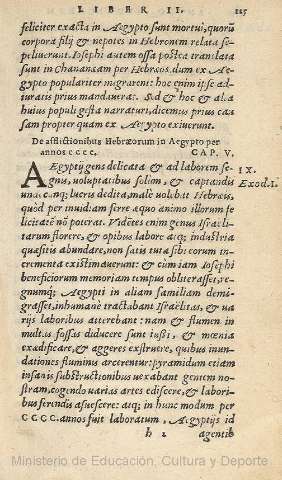 LIBER II.
115
feliciter exacta in Aegypto sunt mortui, quorũ
corpora filij & nepotes in Hebronem relata se-
peliuerunt. Iosephi autem ossa postea translata
sunt in Chananæam per Hebræos, dum ex Ae-
gypto populariter migrarent: hoc enim ipse ad-
iuratis prius mandauerat. Sed & hoc & alia
huius populi gesta narraturi, dicemus prius cau
sam propter quam ex Aegypto exiuerunt.
De afflictionibus Hebræorum in Aegypto per
annos cccc. CAP. V.
AEgyptij gens delicata & ad laborem se-
gnis, voluptatibus solum, & captandis
undecunq; lucris dedita, male volebat Hebræis,
quòd per inuidiam ferre æquo animo illorum fe
licitatẽ nõ poterat. Vidẽtes enim genus Israeli-
tarum florere, & opibus labore atq; industria
quæsitis abundare, non satis tuta sibi eorum in-
crementa existimauerunt: & cùm iam Iosephi
beneficiorum memoriam tempus obliterasset, re-
gnumq; Aegypti in aliam familiam demi-
grasset, inhumanè tractabant Israëlitas, & ua
rijs laboribus atterebant: nam & flumen in
multas fossas diducere sunt iussi, & mœnia
exædificare, & aggeres exstruere, quibus inun-
dationes fluminis arcerentur: pyramidum etiam
insanis substructionibus uexabant gentem no-
stram, cogendo varias artes ediscere, & labori-
bus ferendis assuescere: atq; in hunc modum per
CCCC. annos fuit laboratum, Aegyptijs id
h 2 agentib
IX.
Exod. I.
Ministerio de Educación, Cultura y Deporte